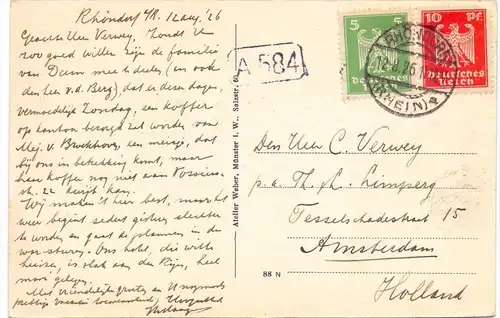 Rhöndorf a/R. 12 aug. '26
Geachte Heer Verwey, Zoudt U
zoo goed willen zijn de familie
van Dam mee te deelen (en ook
den heer v.d. Berg), dat er dezer dagen,
vermoedelijk Zondag, een koffer
op kantoor bezorgd zal worden van
Mej. v. Broekhoven, een meisje, dat
bij ons in betrekking komt, maar
haar koffer nog niet aan Vossius-
str. 22 kwijt kan.
Wij maken 't hier best, maar het
weer begint sedert gisteren slechter
te worden en gaat de plannen in de
war sturen. Ons hotel, die witte
huizen, is vlak aan den Rijn, heel
mooi gelegen.
Met vriendelijke groeten en U nogmaals
prettige vacantie toewenschend,
A 584
5 5
Deutsches
10 Pf.
Deutsches
Reich
RHÖNDORF
12.8.26
(RHEIN)
Atelier Weber, Münster i. W., Salzstr.
88 N
Den Heer C. Verwey
p.a. Th. Limperg
Tesselschadestraat 15
Amsterdam
Holland